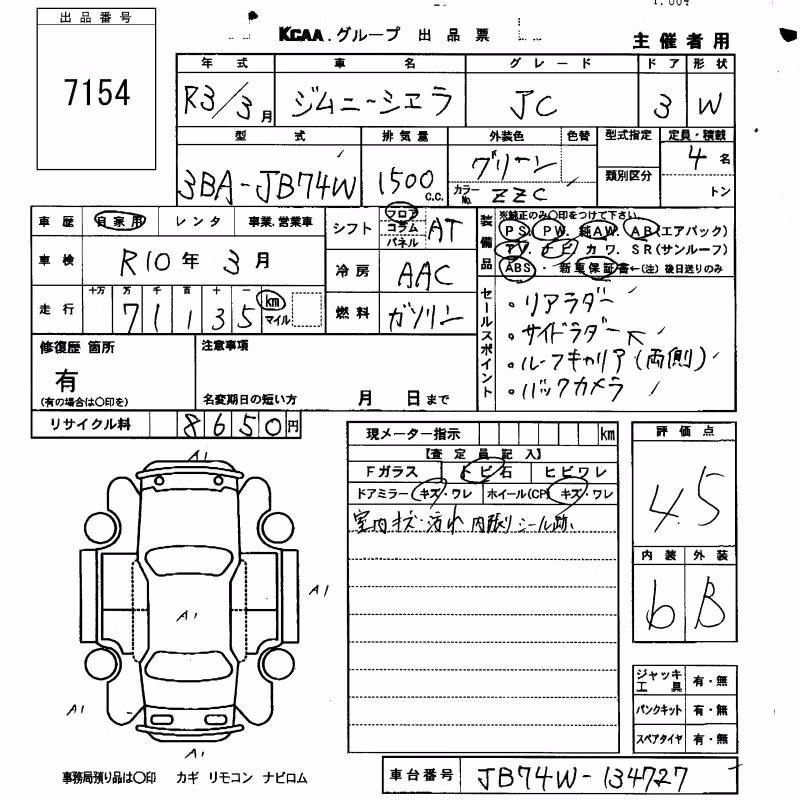 出品番号
7154
KCAA.グループ 出品票
主催者用
年式 車名 グレード ドア 形状
R3/3月 ジムニーシエラ JC 3 W
型式 排気量 外装色 色替 型式指定 定員・積載
3BA-JB74W 1500 c.c. グリーン 4 名
カラーNo. ZZC 類別区分 トン
車歴 自家用 レンタ 事業.営業車
シフト フロア コラム パネル AT
装備品 ※純正のみ〇印をつけて下さい。
PS. PW. 純AW. AB(エアバック)
TV. ナビ カワ. SR(サンルーフ)
ABS ・ 新車保証書←(注) 後日送りのみ
車検 R10年 3月
冷房 AAC
走行 十万 万 千 百 十 一
7 1 1 3 5 km マイル
燃料 ガソリン
セールスポイント
・リアラダー
・サイドラダー
・ルーフキャリア(両側)
・バックカメラ
修復歴 箇所
有
(有の場合は〇印を)
注意事項
名変期日の短い方 月 日まで
リサイクル料 8650円
現メーター指示 km
【査定員記入】
Fガラス トビ石 ヒビワレ
ドアミラー キズ・ワレ ホイール(CP) キズ・ワレ
室内キズ・汚れ 内張りシール跡、
評価点
4.5
内装 外装
6 B
A1
A1
A1
A1
A1
A1
ジャッキ工具 有・無
パンクキット 有・無
スペアタイヤ 有・無
事務局預り品は〇印 カギ リモコン ナビロム
車台番号 JB74W-134727